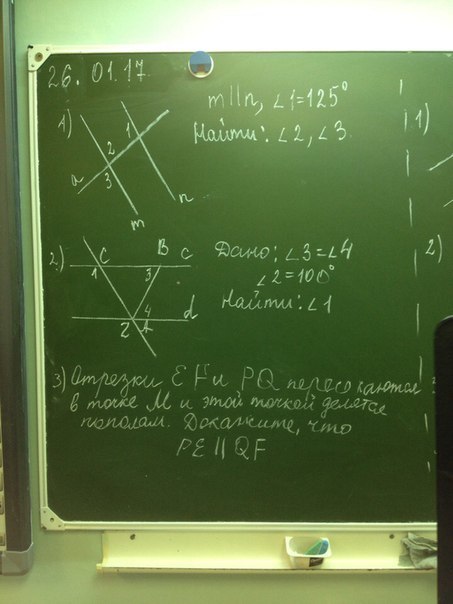 26.01.17
1)
m||n, ∠1=125°
Найти: ∠2, ∠3
1
2
3
a
m
n
2)
C
B
c
1
3
4
2
d
Дано: ∠3=∠4
∠2=100°
Найти: ∠1
3) Отрезки EF и PQ пересекаются
в точке M и этой точкой делятся
пополам. Докажите, что
PE || QF
1)
2)